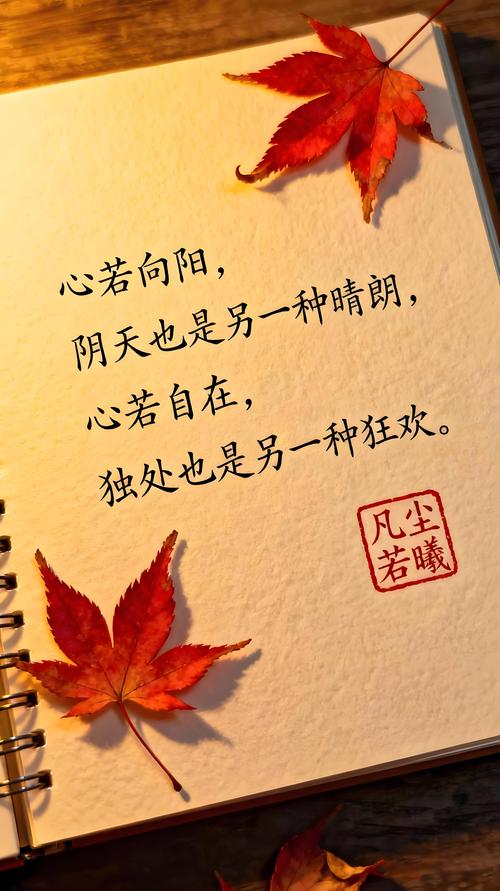 心若向阳，
阴天也是另一种晴朗，
心若自在，
独处也是另一种狂欢。
凡尘
若曦